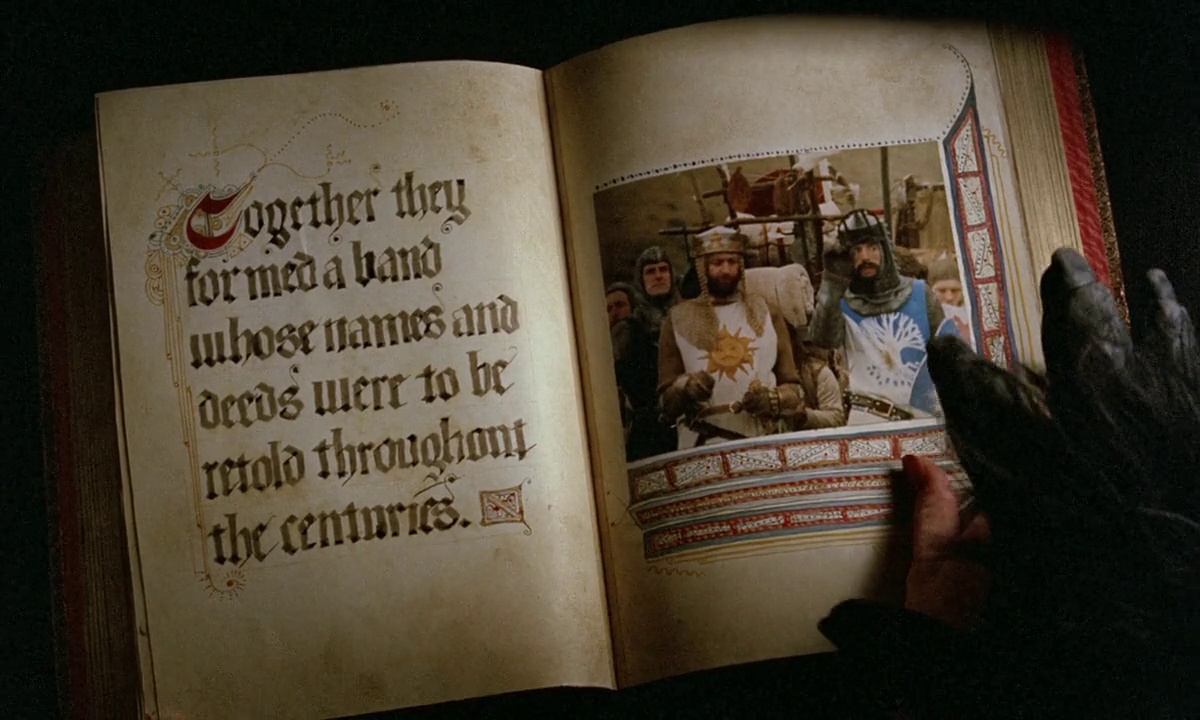 Together they
formed a band
whose names and
deeds were to be
retold throughout
the centuries.